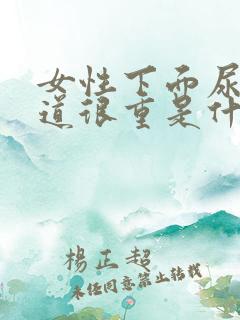 女性下面尿
道很重是什
楊正超
未经同意禁止转载